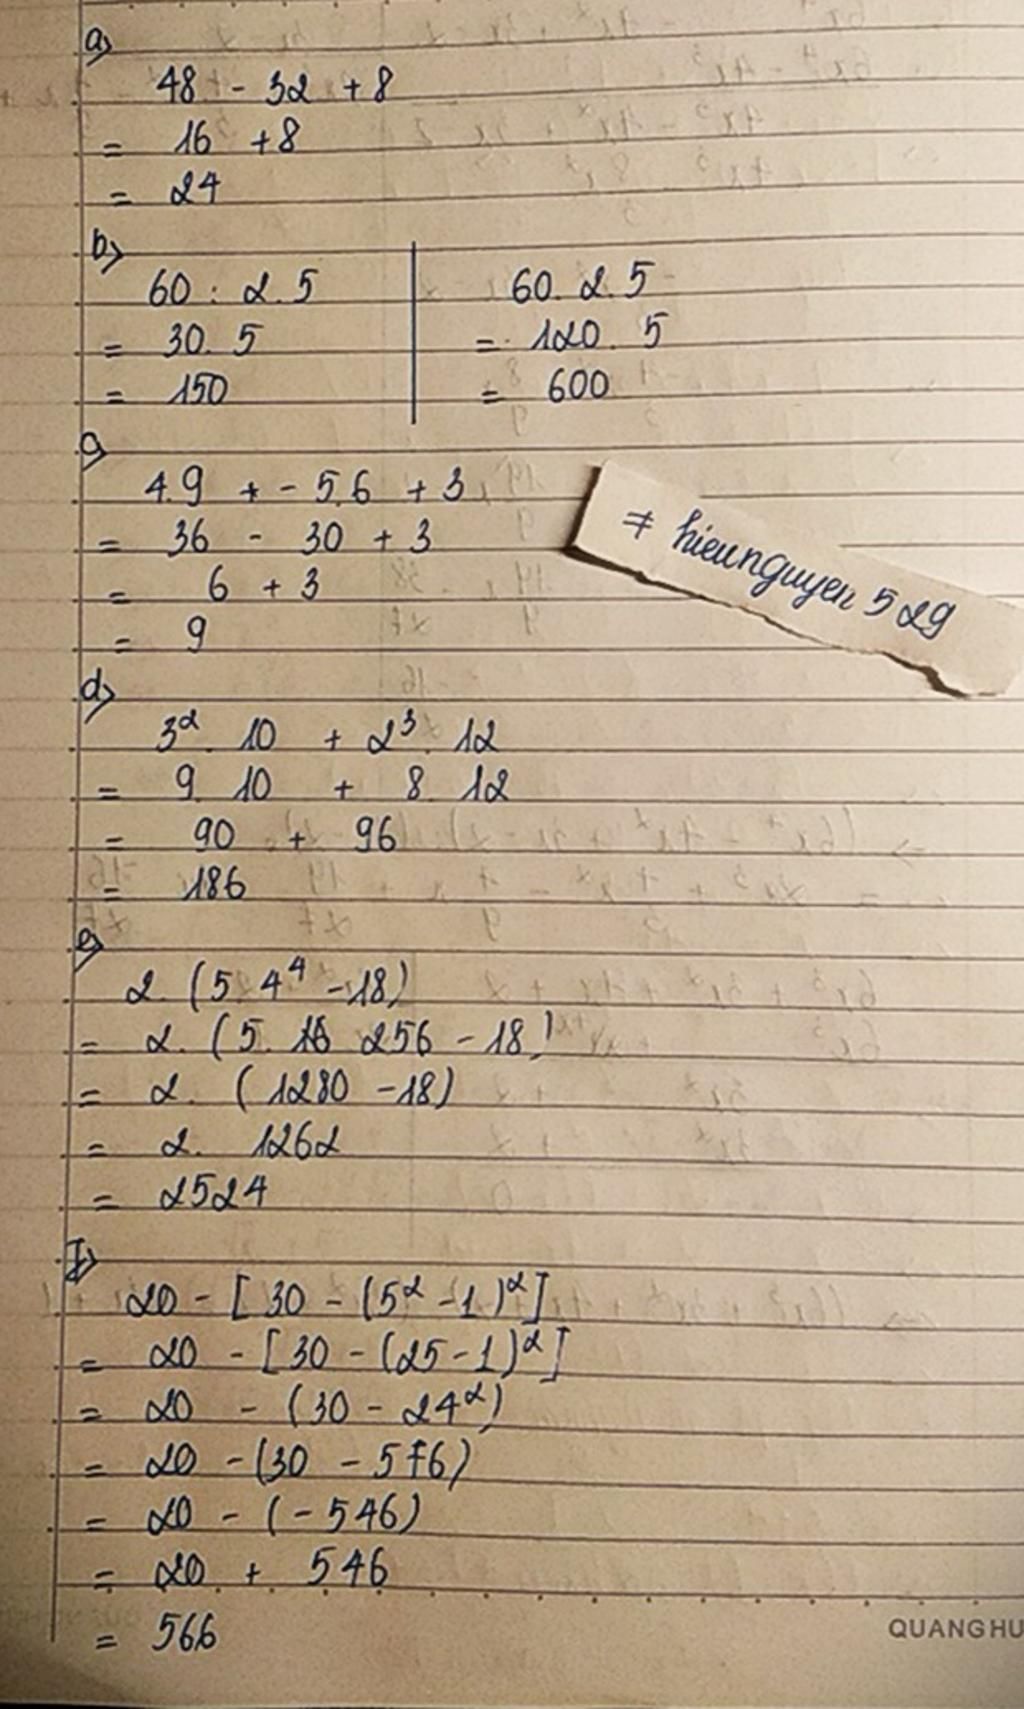 a)
48 - 32 + 8
= 16 + 8
= 24
b)
60 : 2.5
= 30.5
= 150
60.2.5
= 120.5
= 600
c)
4.9 + - 5.6 + 3
= 36 - 30 + 3
= 6 + 3
= 9
≠ hieunguyen 529
d)
3². 10 + 2³. 12
= 9. 10 + 8. 12
= 90 + 96
= 186
e)
2. (5.4⁴ - 18)
= 2. (5. 256 - 18)
= 2. (1280 - 18)
= 2. 1262
= 2524
f)
20 - [30 - (5² - 1)²]
= 20 - [30 - (25 - 1)²]
= 20 - (30 - 24²)
= 20 - (30 - 576)
= 20 - (-546)
= 20 + 546
= 566
QUANG HU